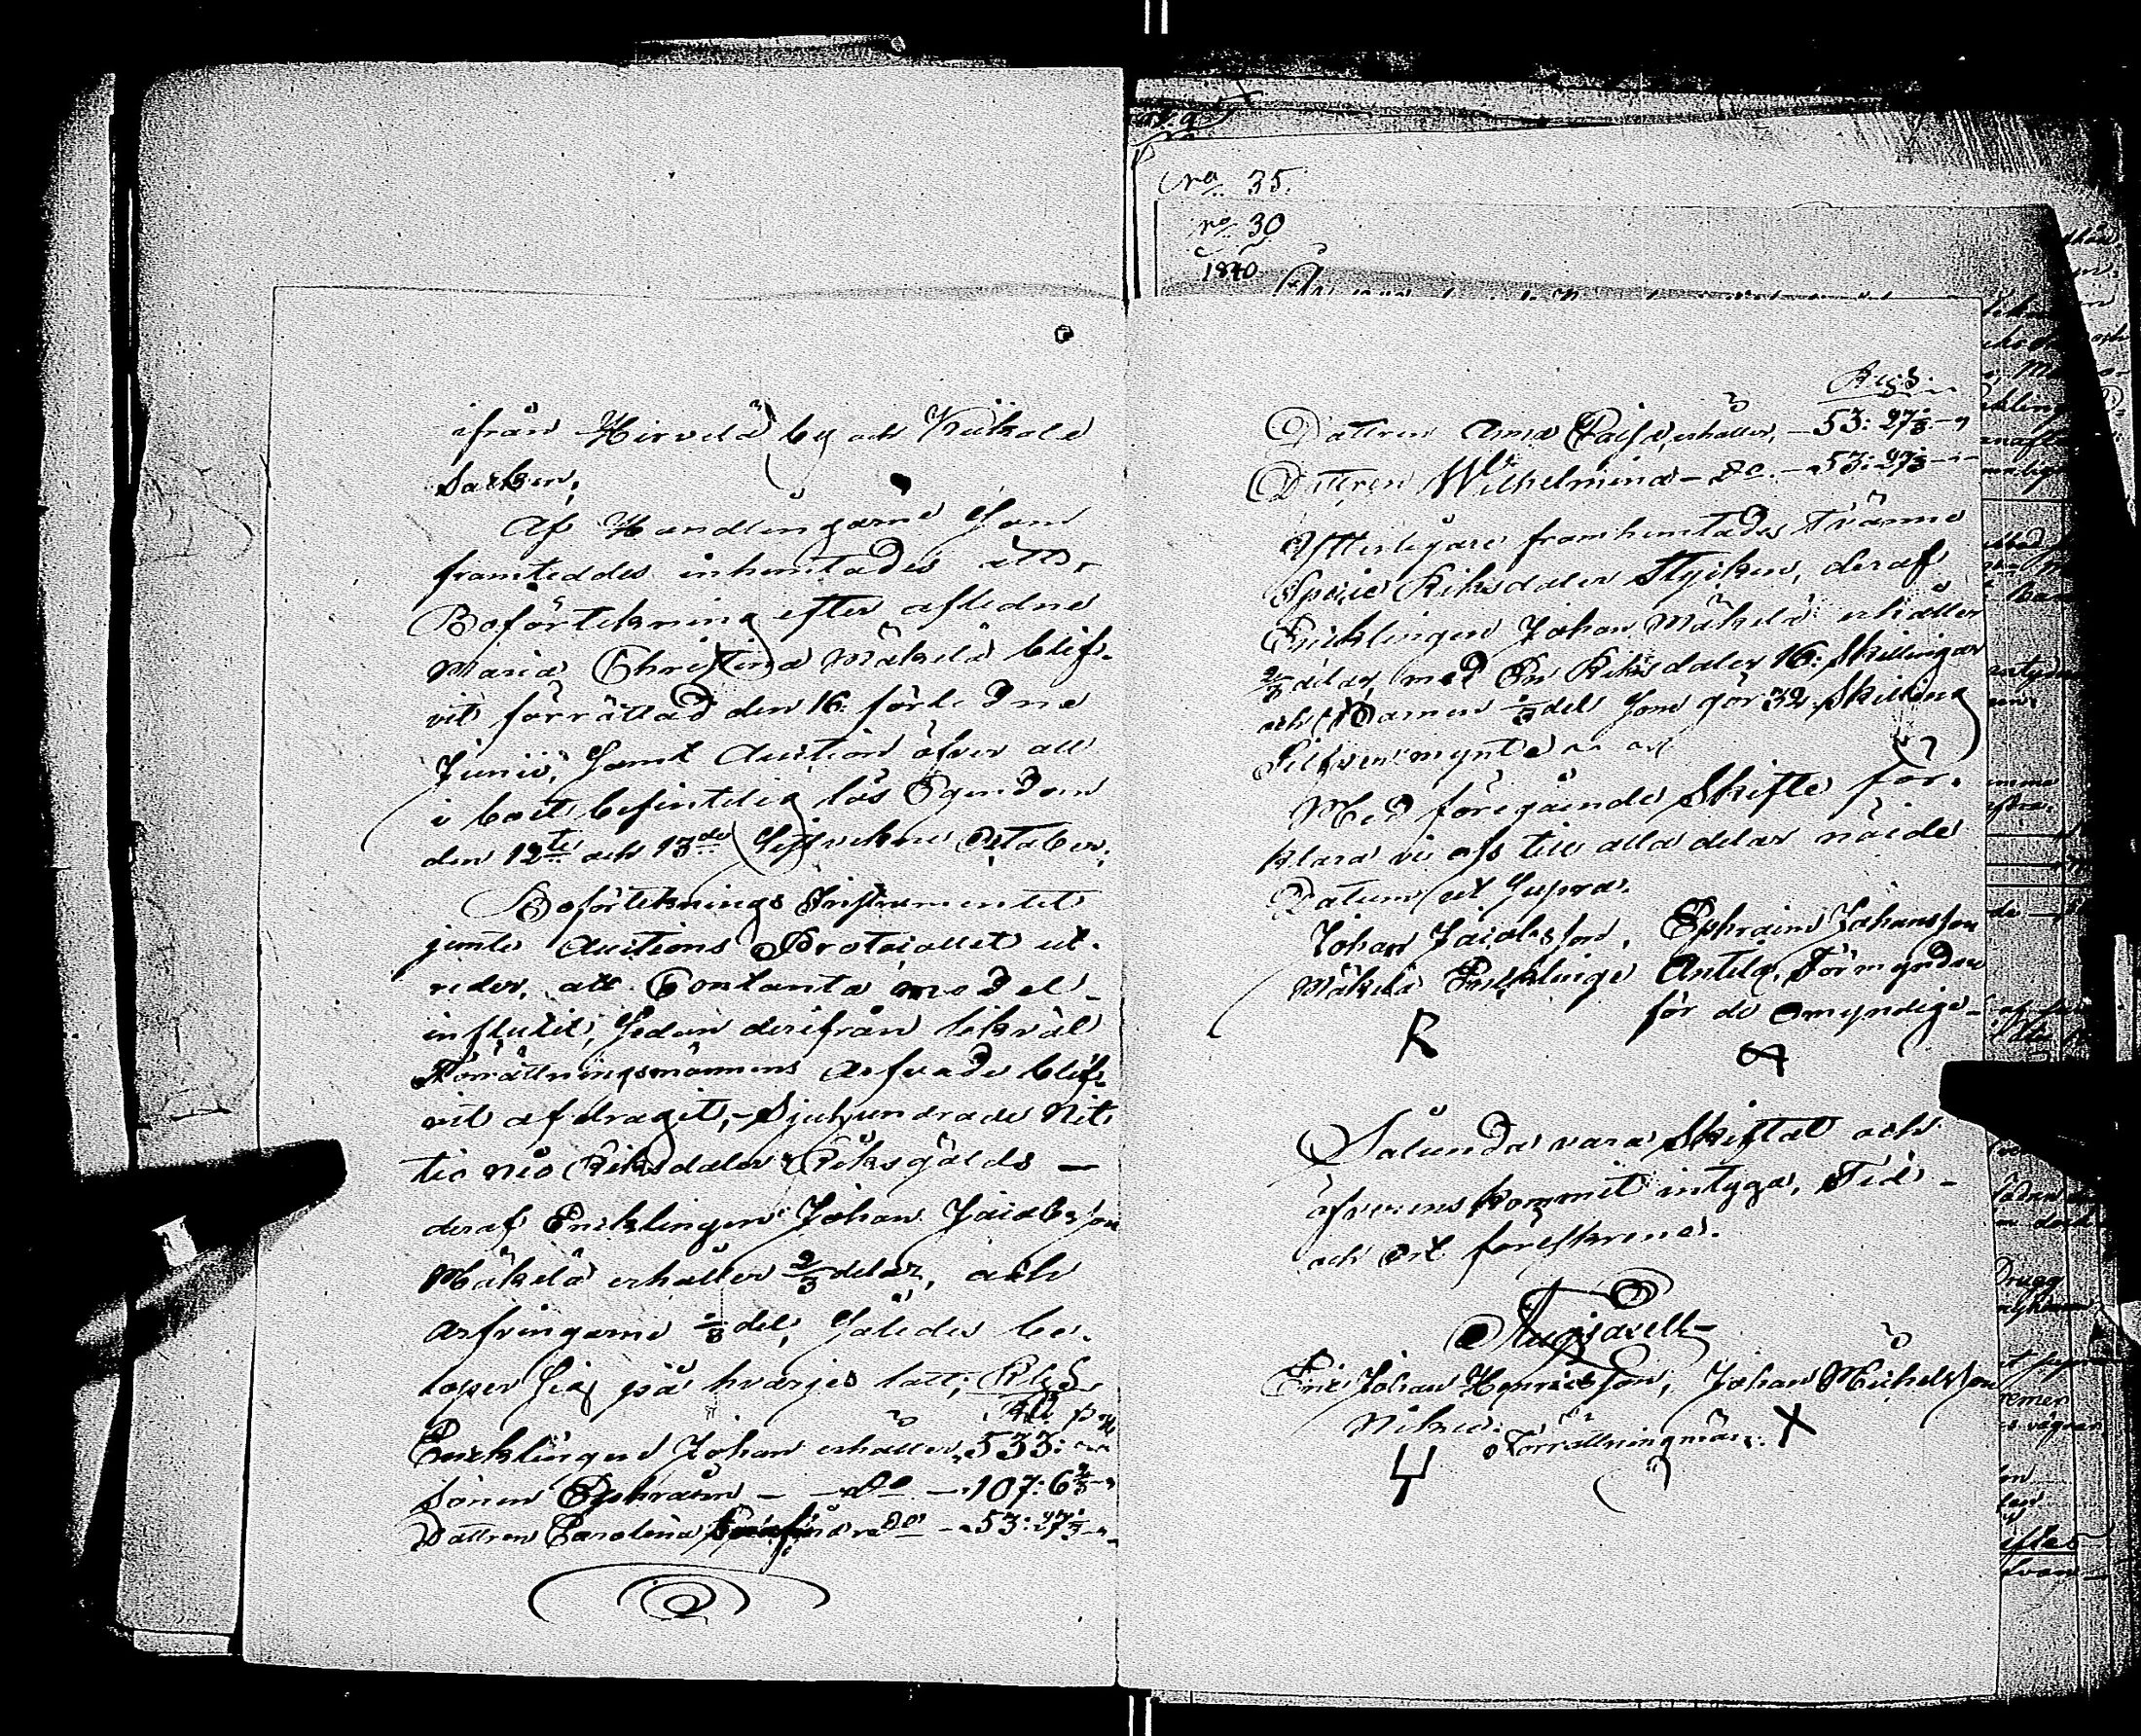 ifrån Hirvelä by och Kiikala
Socken,
Af Handlingarne som
framteddes inhemtades att
Boförtekning efter aflidne
Maria Christina Mäkelä blif-
vit förrättad den 16. förlidne
Junii, samt Auction öfver all
i boet befintelig lös Egendom
den 12te och 13de October.
Boförteknings Instrumentet
jemte Auctions Protocollet ut-
reder, att Contanta medel
influtit, sedan derifrån likväl
Förrättningsmännens Arfvode blif-
vit afdragit, Sjuhundrade Nit-
tio nio Riksdaler Riksgälds —
deraf Enklingen Johan Jacobsson
Mäkelä erhåller 2/3 delar, och
Arfvingarne 1/3 del, således be-
löper sig på hvarjes lott, RgS
Encklingen Johan erhåller 533:
Sonen Ephraim — do — 107: 6 2/3
Dottren Carolina do — 53: 27 1/3
No 35.
No 30
1840
RgS.
Dottren Anna Caisa, erhåller, — 53: 27 1/3
Dottren Wilhelmina — do — 53: 27 1/3
Ytterligare framhemtades Tvänne
Specie Riksdaler Stycken, deraf
Encklingen Johan Mäkelä erhåller
2/3 delar med En Riksdaler 16. Skillingar
och Barnen 1/3 del som gör 32 Skilling
Silfvermynte
Med föregående Skifte för-
klara vi oss till alla delar nöjde
Datum ut Supra.
Johan Jacobsson, Ephraim Johansson
Mäkelä Encklinge Antila, Förmyndare
för de Omyndige
R
Sålunda vara Skiftat och
öfverenskommit intyga, Tid
och Ort föreskrifne.
Eric Johan Henricsson, Johan Michelsson
Förrättningsmän. X